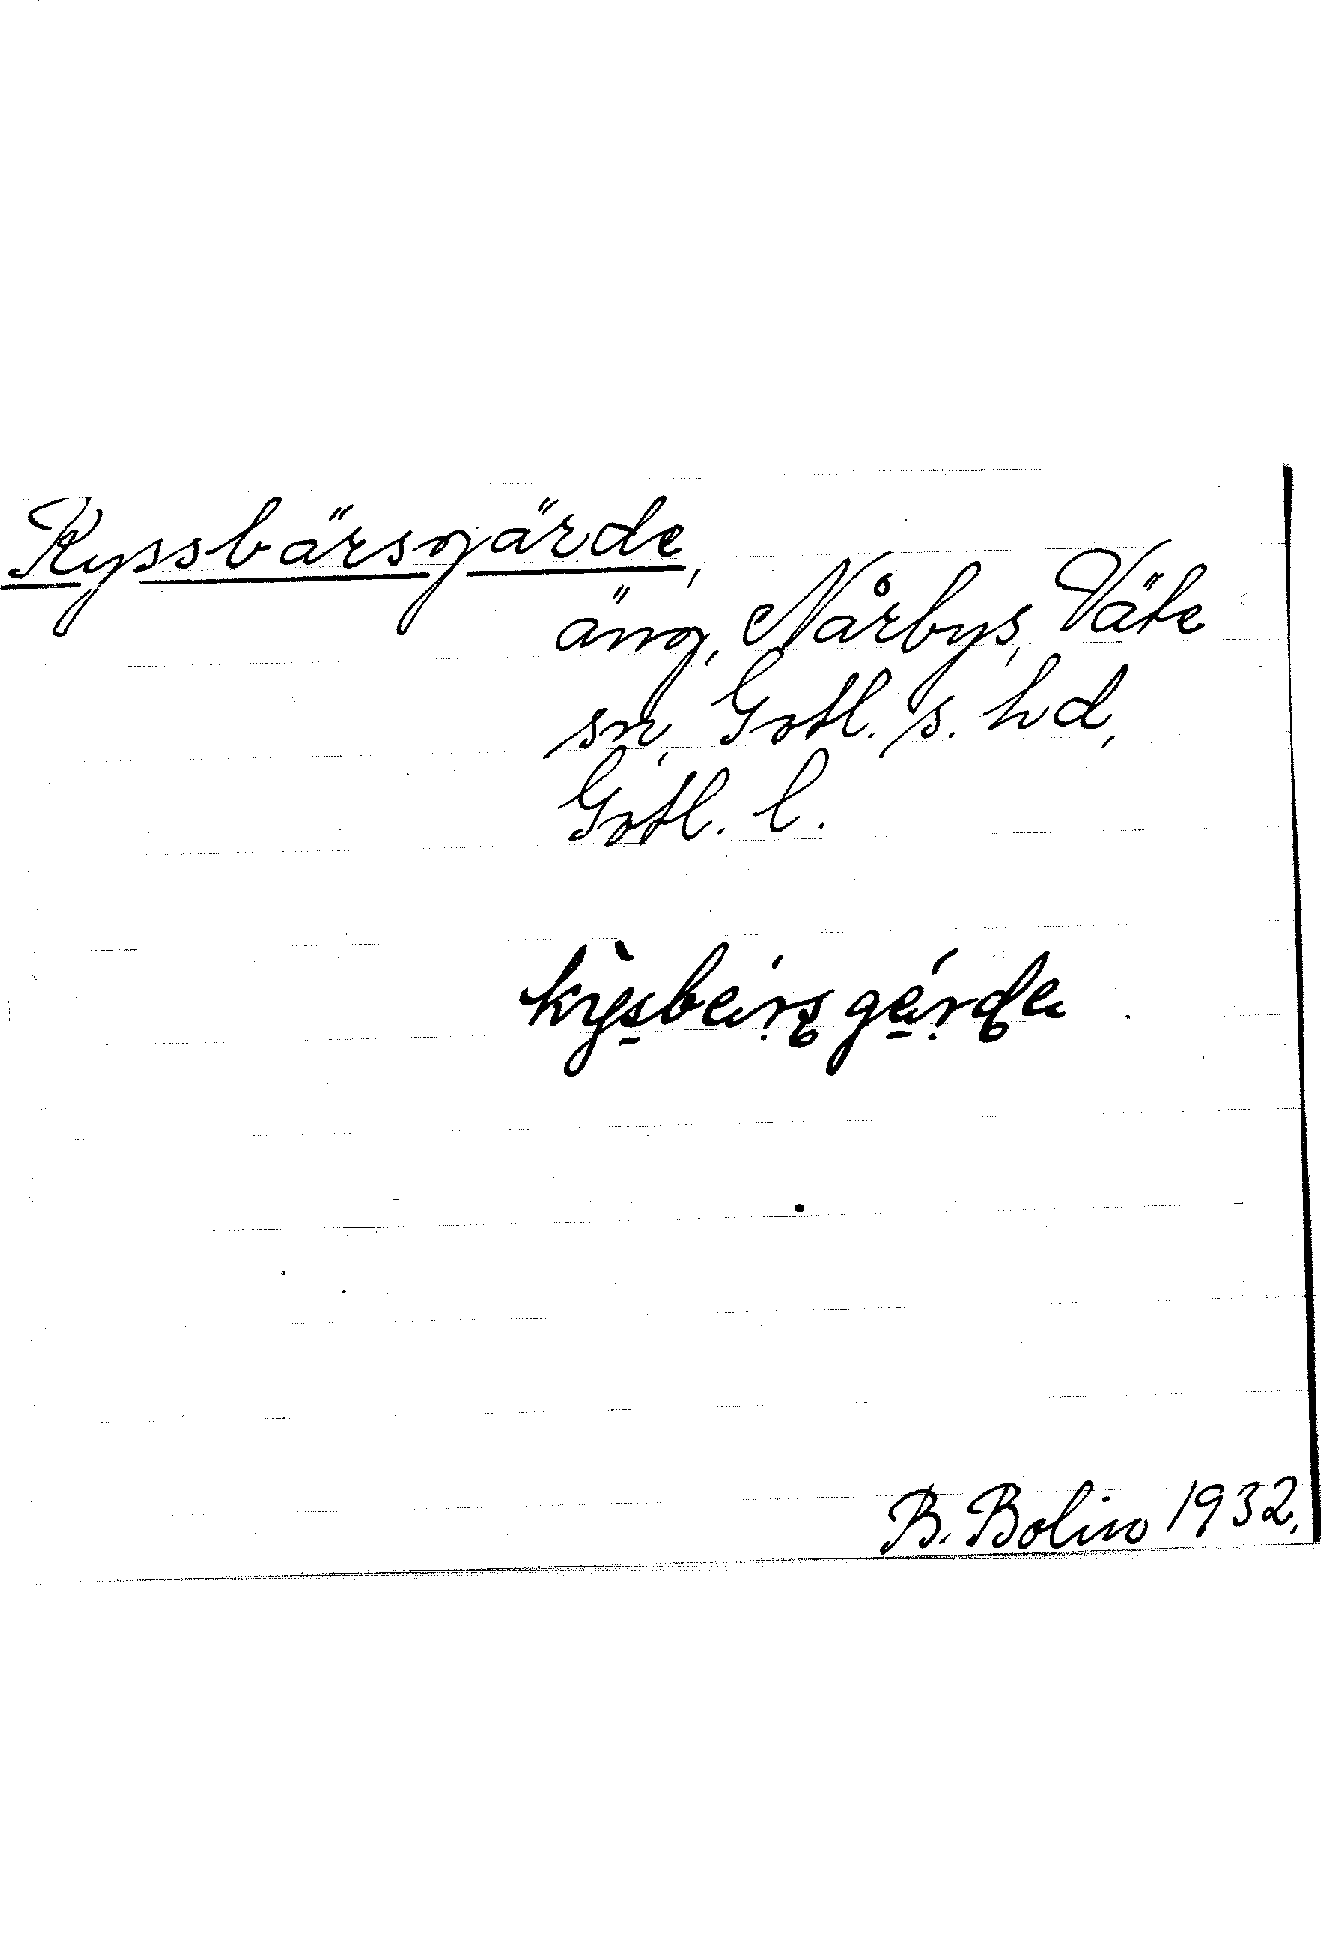 Kyssbärsgärde,
äng, Nårbys, Väte
sn, Gotl. s. hd,
Gotl. l.
B. Bolin 1932.